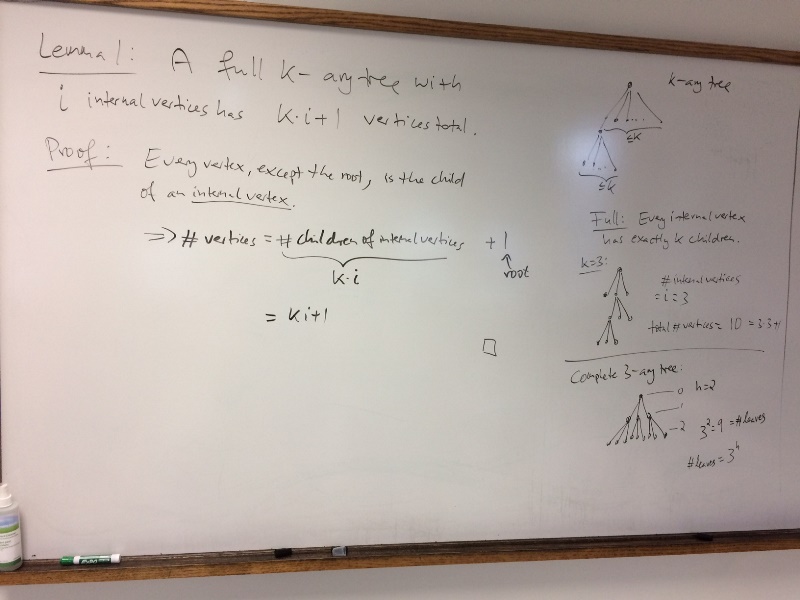 Lemma 1: A full k-ary tree with
i internal vertices has k·i+1 vertices total.
Proof: Every vertex, except the root, is the child
of an internal vertex.
=> # vertices = # children of internal vertices + 1
k·i
root
= ki+1
k-ary tree
≤k
≤k
Full: Every internal vertex
has exactly k children.
k=3:
# internal vertices
= i = 3
total # vertices = 10 = 3·3+1
Complete 3-ary tree:
0 h=2
1
2 3²=9 = #leaves
#leaves = 3^h